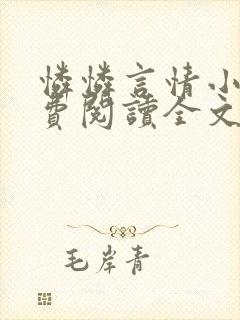 憐憐言情小
費閱讀全文
毛岸青